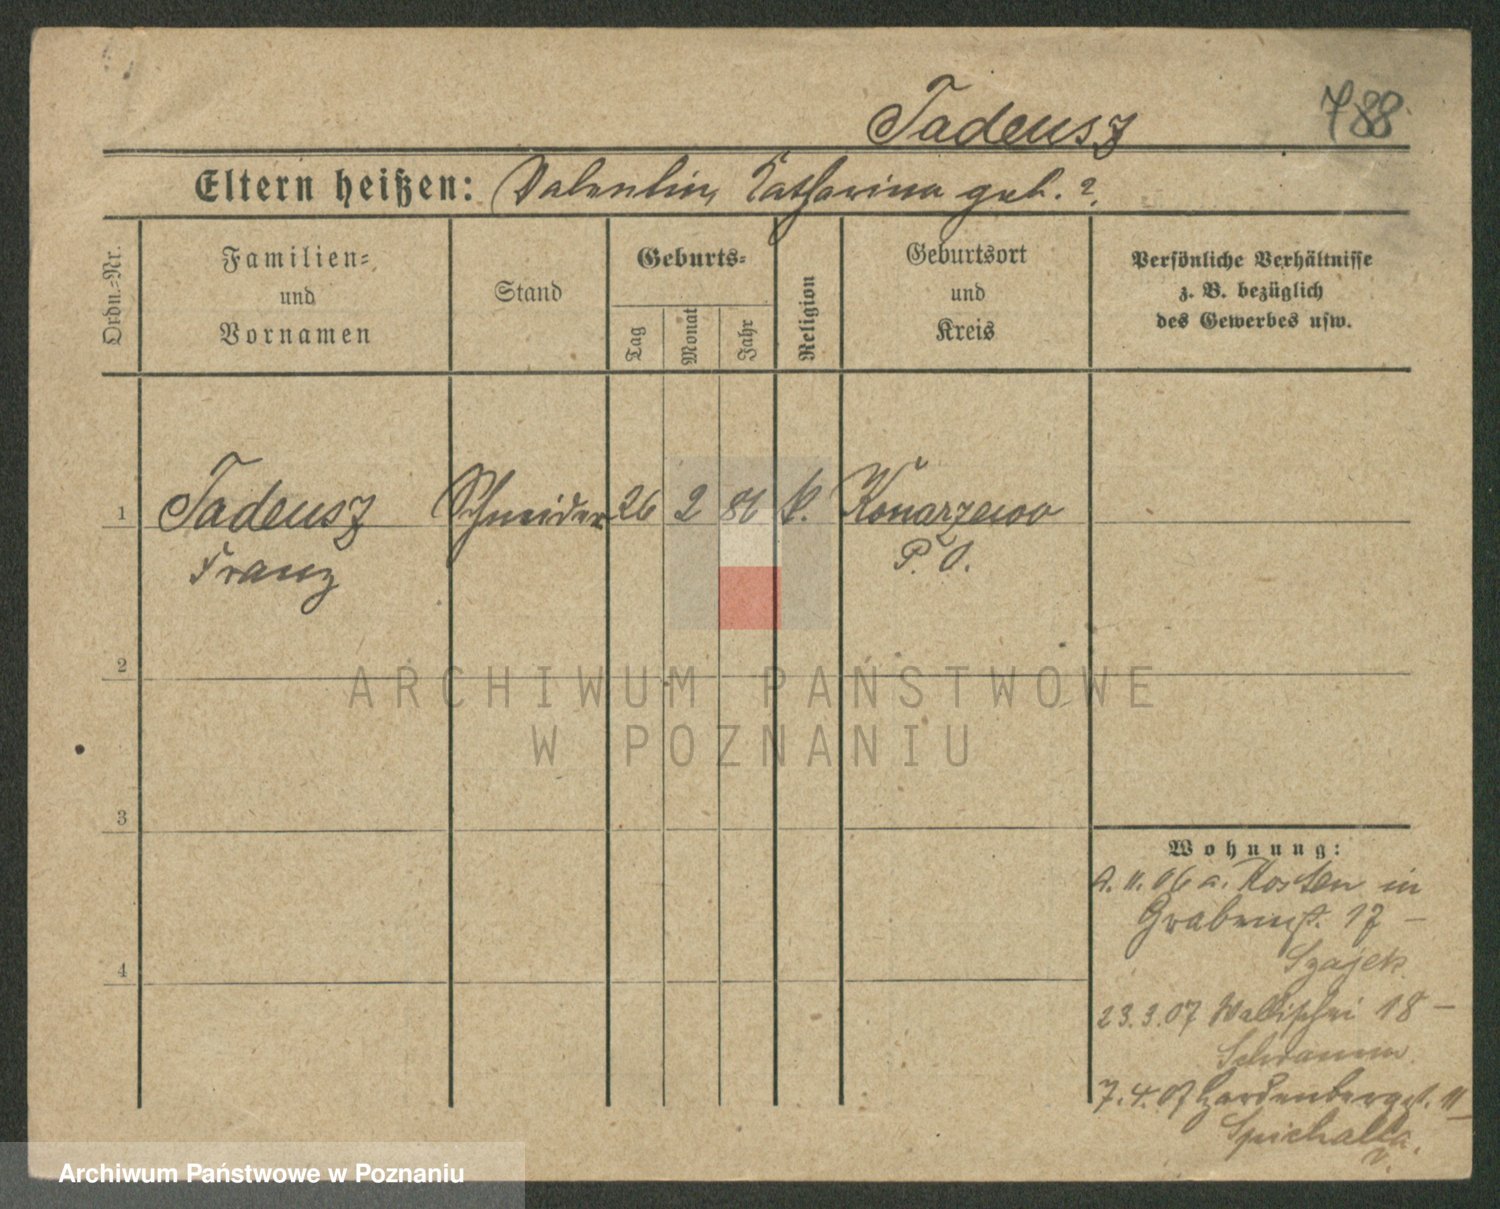 Tadeusz 788
Eltern heißen: Valentin, Katharina geb. ?
Ordn.-Nr.
Familien-
und
Vornamen
Stand
Geburts-
Tag
Monat
Jahr
Religion
Geburtsort
und
Kreis
Persönliche Verhältnisse
z. B. bezüglich
des Gewerbes usw.
1 Tadeusz Schneider 26 2 86 k. Konarzewo
Franz P. O.
2
ARCHIWUM PAŃSTWOWE
W POZNANIU
3
Wohnung:
9.11.06 a. Kosten in
Grabenst. 17 –
Szajek
4
23.3.07 Wallischei 18 –
Schramm
7.4.07 Hardenbergst. 11 –
Spichalla.
Archiwum Państwowe w Poznaniu